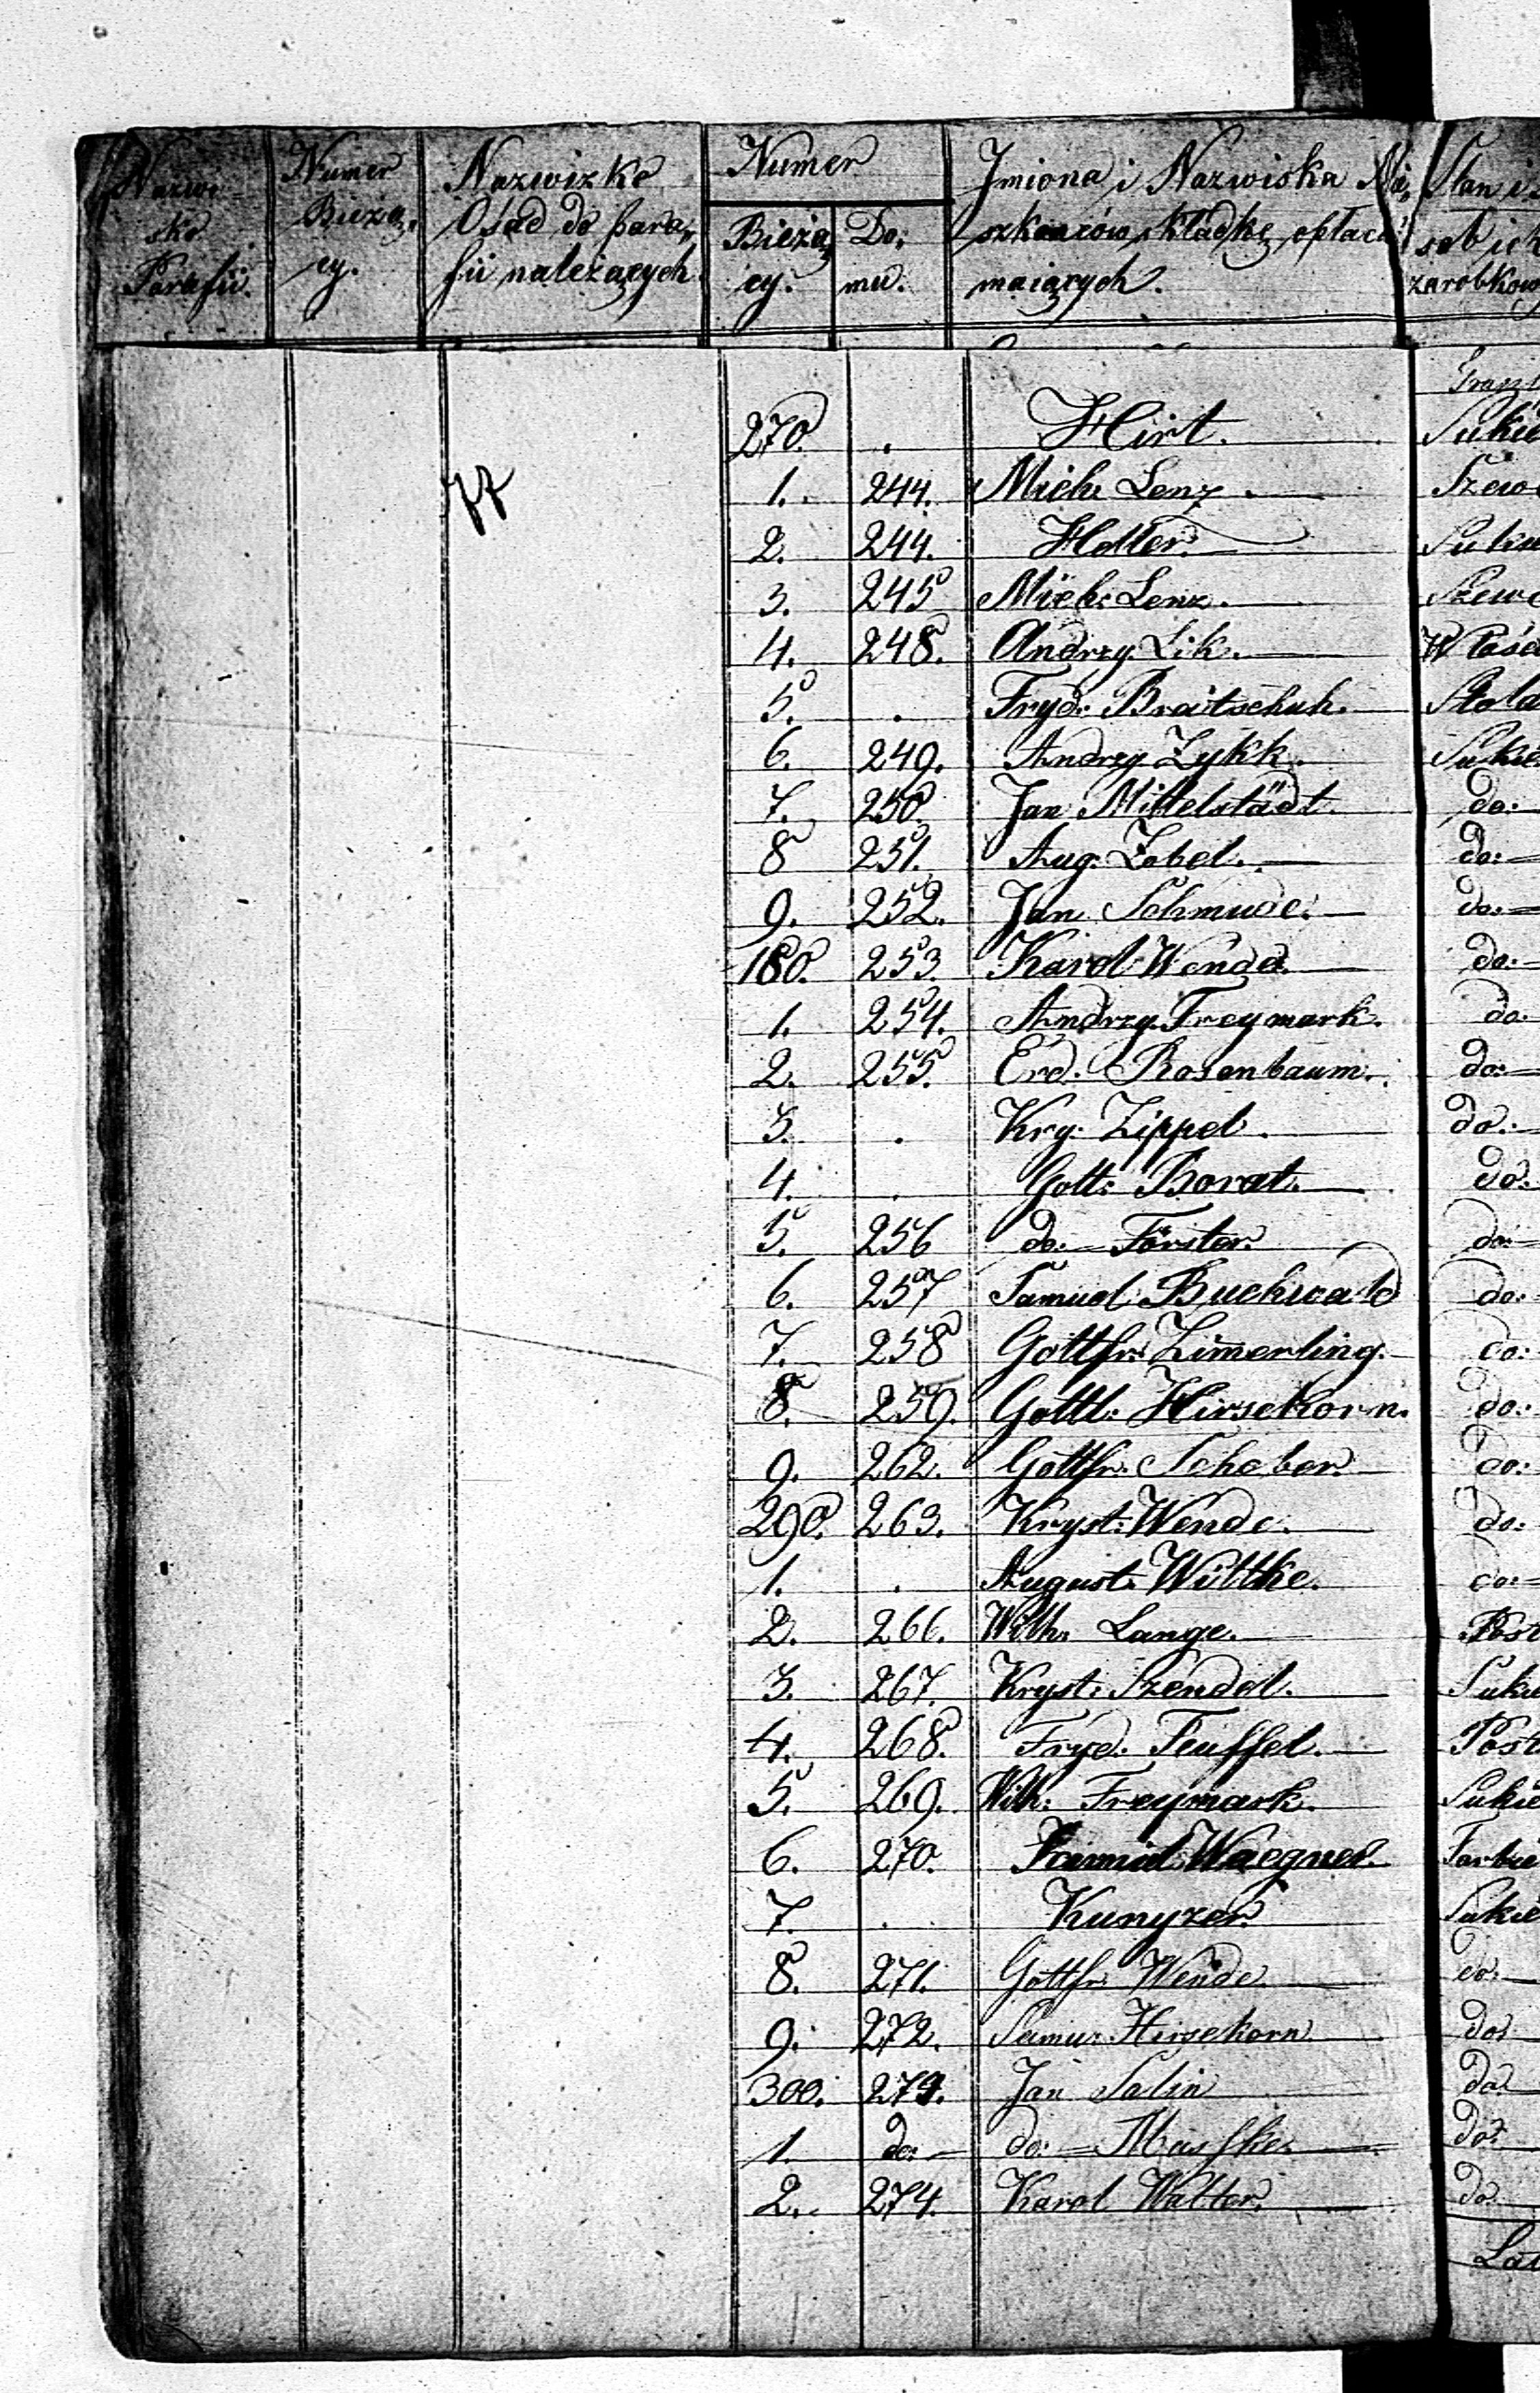 Nazwi
sko
Parafii.
Numer
Bieżą,
cy.
Nazwizke
Osad do para,
fii należących
Numer
Bieżą,
cy.
Do,
mu.
Jmiona i Nazwiska Mi,
szkańców składkę opłacać
maiących.
Stan i
sob ich
zarobkow
270. . Hirt. Sukie
77
1. 244. Mich: Lenz. Szew
2. 244. Suki
3. 245 Mich: Lenz. Szewc
4. 248. Andrzy Lik. Właśc
5. . Fryd: Braitschuh. Stola
6. 249. Andrzy Lykk. Sukie
7. 250. Jan Mittelstädt. do:
8 251. Aug: Zobel. do:
9. 252. Jan Schmude. do:
180. 253. Karol Wende. do:
1. 254. Andrzy Freymark. do:
2. 255. Erd. Rosenbaum. do:
3. . Kry: Zippel. do:
4. . Gottl: Borat. do:
5. 256 do: Förster. do:
6. 257 Samuel Buchwald do:
7. 258 Gottfr: Zimerling. do:
8. 259. Gottl: Hirsekorn. do:
9. 262. Gottfr: Schober. do:
290. 263. Kryst: Wende. do:
1. . August: Wittke. do:
2. 266. Wilh: Lange. Post
3. 267. Kryst: Szendel. Suki
4. 268. Fryd: Teuffel. Post
5. 269. Wilh: Freymark. Sukie
6. 270. Waegner. Farbie
7. . Kunyzer. Sukie
8. 271. Gottfr: Wende do:
9. 272. Samu: Hirsekorn do:
300. 273. Jan Salin do:
1. do: do: Maske. do:
2. 274. Karol Walter. do: